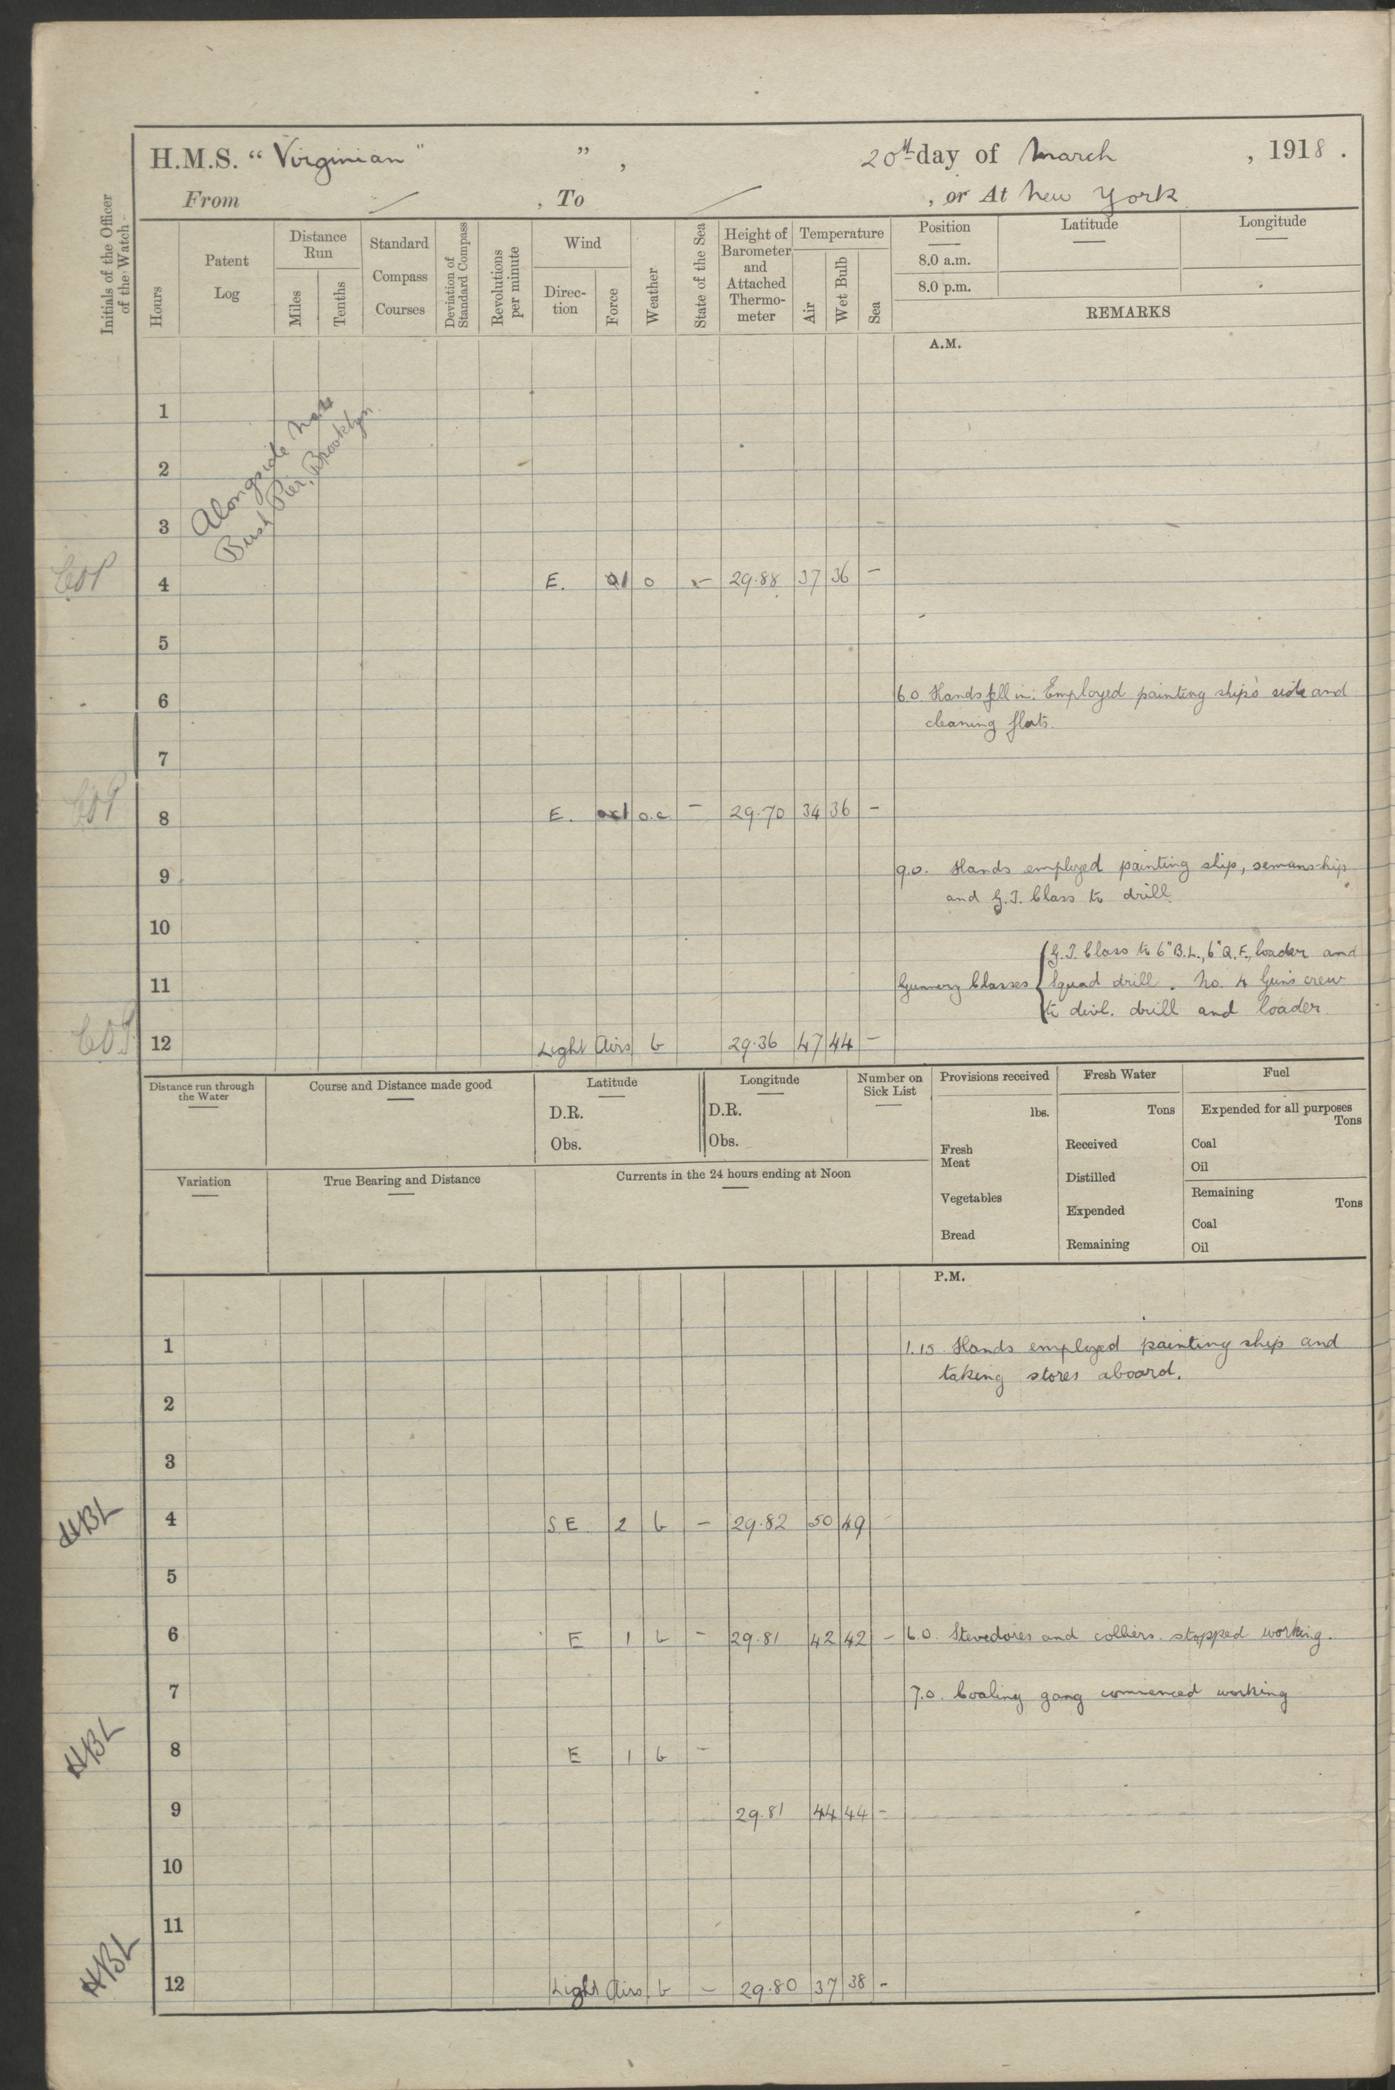 H.M.S. "Virginian" ", 20th day of March, 1918.
From / , To / , or At New York
Initials of the Officer of the Watch
Hours
Patent Log
Distance Run
Miles
Tenths
Standard Compass Courses
Deviation of Standard Compass
Revolutions per minute
Wind
Direc-tion
Force
Weather
State of the Sea
Height of Barometer and Attached Thermo-meter
Temperature
Air
Wet Bulb
Sea
Position
8.0 a.m.
8.0 p.m.
Latitude
Longitude
REMARKS
A.M.
1
2
3
Alongside No 4
Bush Pier, Brooklyn.
4 E. 1 o - 29.88 37 36 -
5
6 6.0 Hands fell in: Employed painting ship's side and
cleaning flats.
7
8 E. 1 o.c - 29.70 34 36 -
9 9.0. Hands employed painting ship, semanship
and G.T. Class to drill
10
G.T. Class to 6" B.L., 6" Q.F., loader and
11 Gunnery Classes { Squad drill. No. 4 Gun's crew
to divl. drill and loader.
12 Light Airs b 29.36 47 44 -
Distance run through the Water
Course and Distance made good
Latitude
D.R.
Obs.
Longitude
D.R.
Obs.
Number on Sick List
Provisions received
lbs.
Fresh Meat
Vegetables
Bread
Fresh Water
Tons
Received
Distilled
Expended
Remaining
Fuel
Expended for all purposes
Tons
Coal
Oil
Remaining
Tons
Coal
Oil
Variation
True Bearing and Distance
Currents in the 24 hours ending at Noon
P.M.
1 1.15 Hands employed painting ship and
taking stores aboard.
2
3
HBL 4 S E 2 b - 29.82 50 49
5
6 E 1 b - 29.81 42 42 - 6.0. Stevedores and colliers stopped working.
7 7.0. Coaling gang comienced working
HBL 8 E 1 b -
9 29.81 44 44 -
10
11
HBL 12 Light Airs b - 29.80 37 38 -